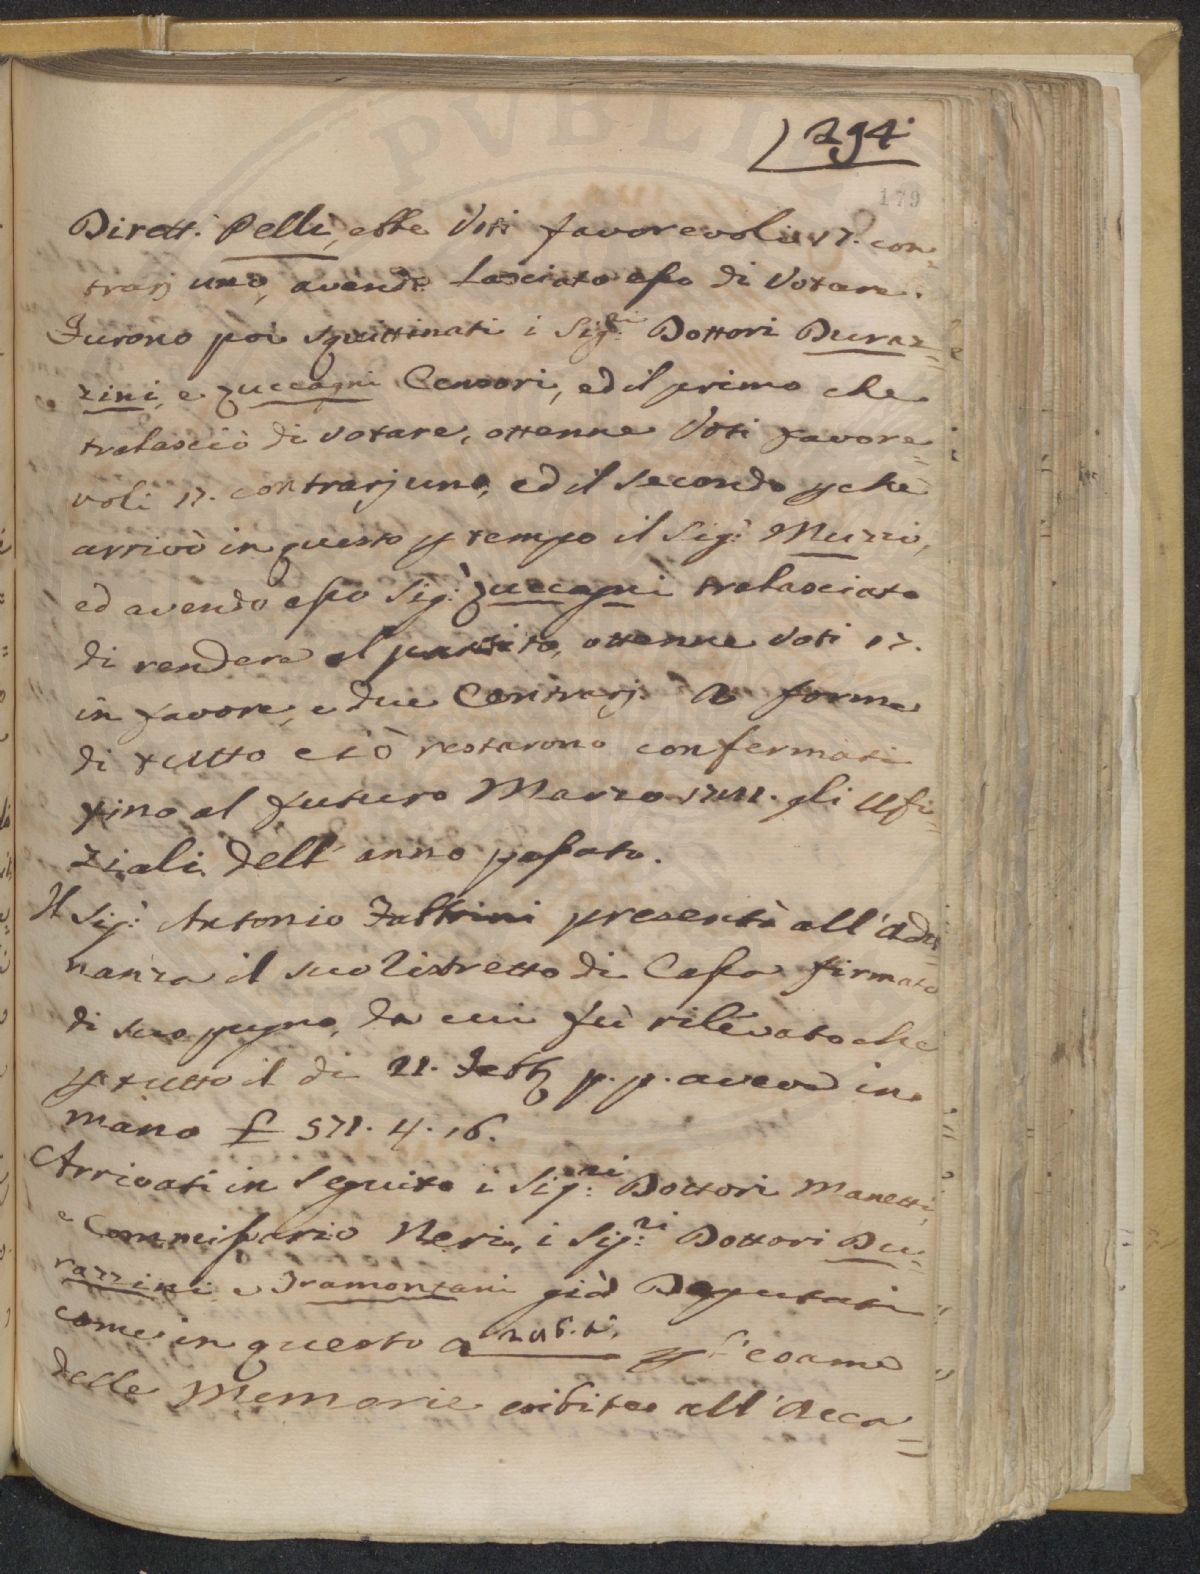 294.
179
Dirett. Pelli, ebbe Voti favorevoli 17. con-
trarj uno, avendo Lasciato esso di Votare.
Furono poi squittinati i Sig.ri Dottori Duraz=
zini, e Zuccagni Censori, ed il primo che
tralasciò di Votare, ottenne Voti favore=
voli 17. contrarj uno, ed il secondo p che
arrivò in questo p tempo il Sig.r Muzzi,
ed avendo esso Sig.r Zuccagni tralasciato
di rendere il partito, ottenne Voti 17.
in favore, e due Contrarj. A forma
di tutto ciò restarono confermati
fino al futuro Marzo gli Ufi=
ziali dell' anno passato.
Il Sig.r Antonio Fabbrini presentò all' Adu=
nanza il suo Ristretto di Cassa firmato
di suo pugno, da cui fù rilevato che
p tutto il di 28. Febb p. p. aveva in
mano £ 571. 4. 16.
Arrivati in seguito i Sig.ri Dottori Manetti,
e Commissario Neri, i Sig.ri Dottori Du-
razzini e Tramontani già Deputati
come in questo a p l' esame
delle Memorie esibite all' Acca=